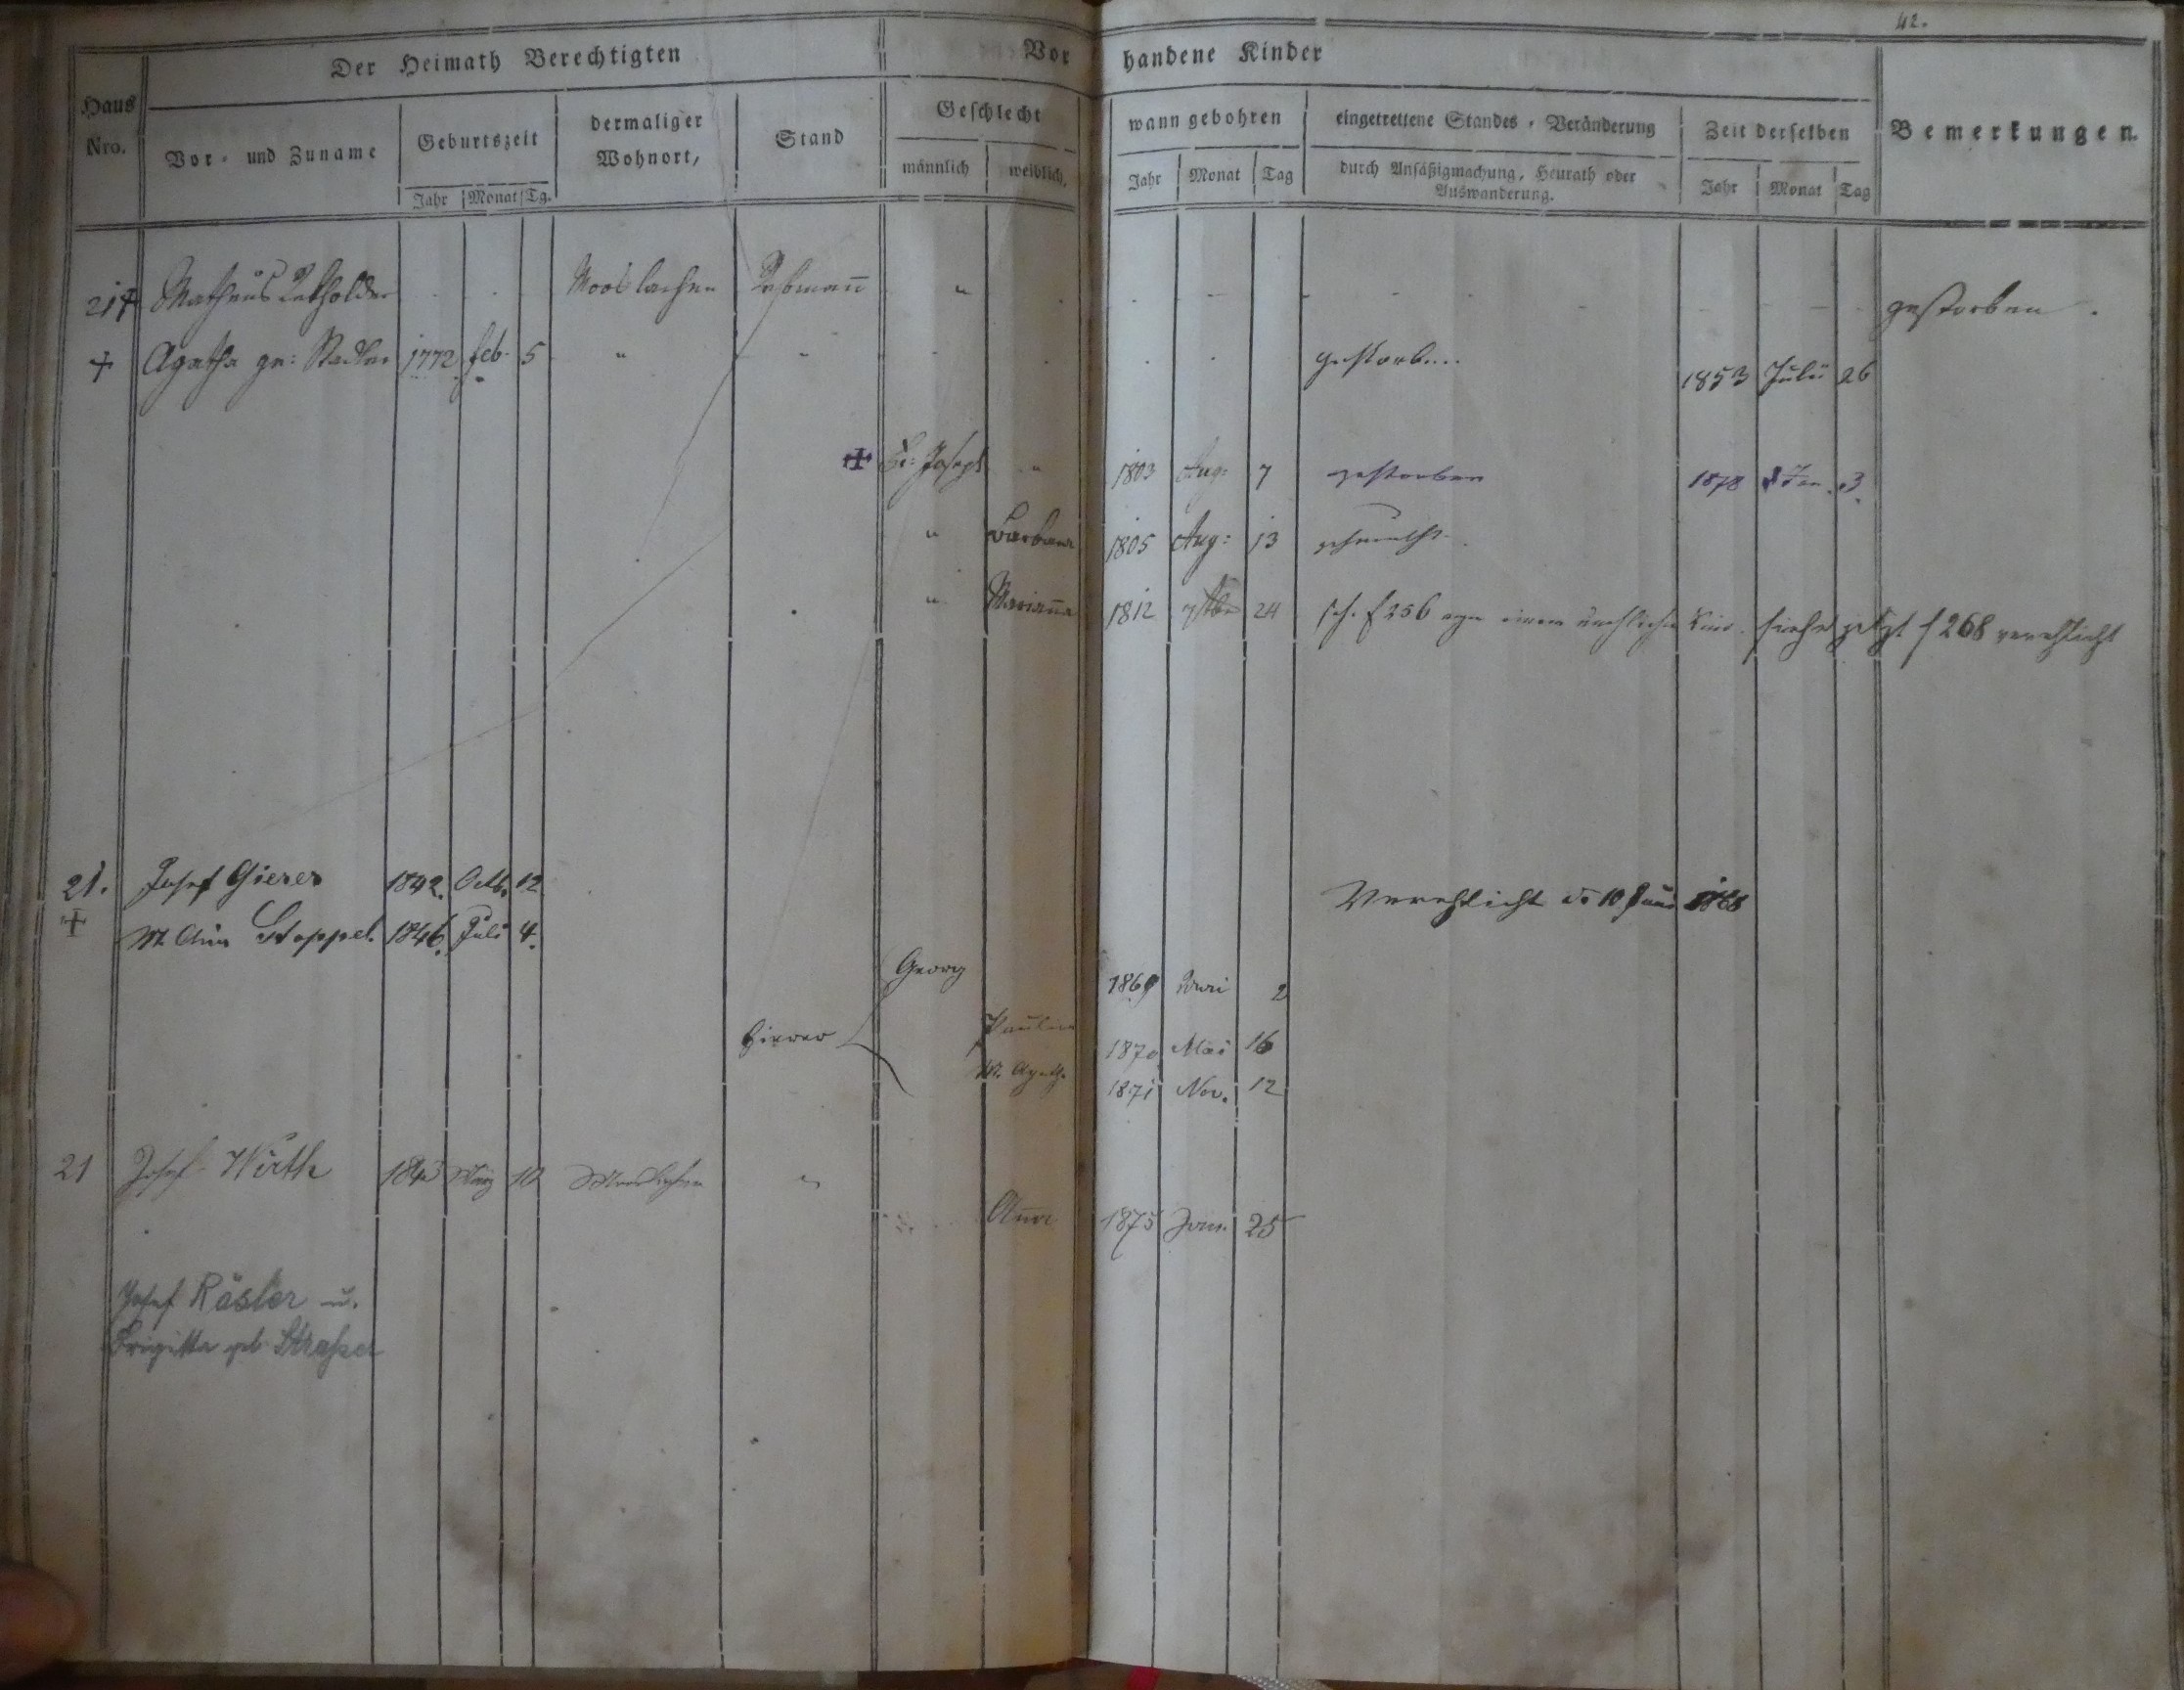 42.
Der Heimath Berechtigten
Vorhandene Kinder
Haus Nro.
Vor- und Zuname
Geburtszeit
Jahr Monat Tg.
dermaliger Wohnort,
Stand
Geschlecht
männlich weiblich,
wann gebohren
Jahr Monat Tag
eingetrettene Standes-Veränderung
durch Ansäßigmachung, Heurath oder
Auswanderung.
Zeit derselben
Jahr Monat Tag
Bemerkungen.
21 + Matheus Mooslachen Rebmañ " gestorben.
+ Agatha ge: Stadler 1772 feb. 5 " gestorben 1853 Julii 26
+ Joseph " 1803 Aug: 7 gestorben 1878 Jan. 3.
" Barbara 1805 Aug: 13
" Mariana 1812 7tbr 24 f 256 einem unehlichen Kind. siehe jetzt f 268 verehlicht
21. Josef Gierer 1842. Octb. 12 Verehlicht d. 10 Juni 1868
+ M. Anna Stoppel. 1846. Juli 4.
Georg 1869 2
Gierer Paulina 1870 Mai 16
M. Agatha 1871 Nov. 12
21 Josef Wirth März 10 Mooslachen "
Anna 1875 Jan. 25
Josef Räsler u.
Brigitta geb. Straßer